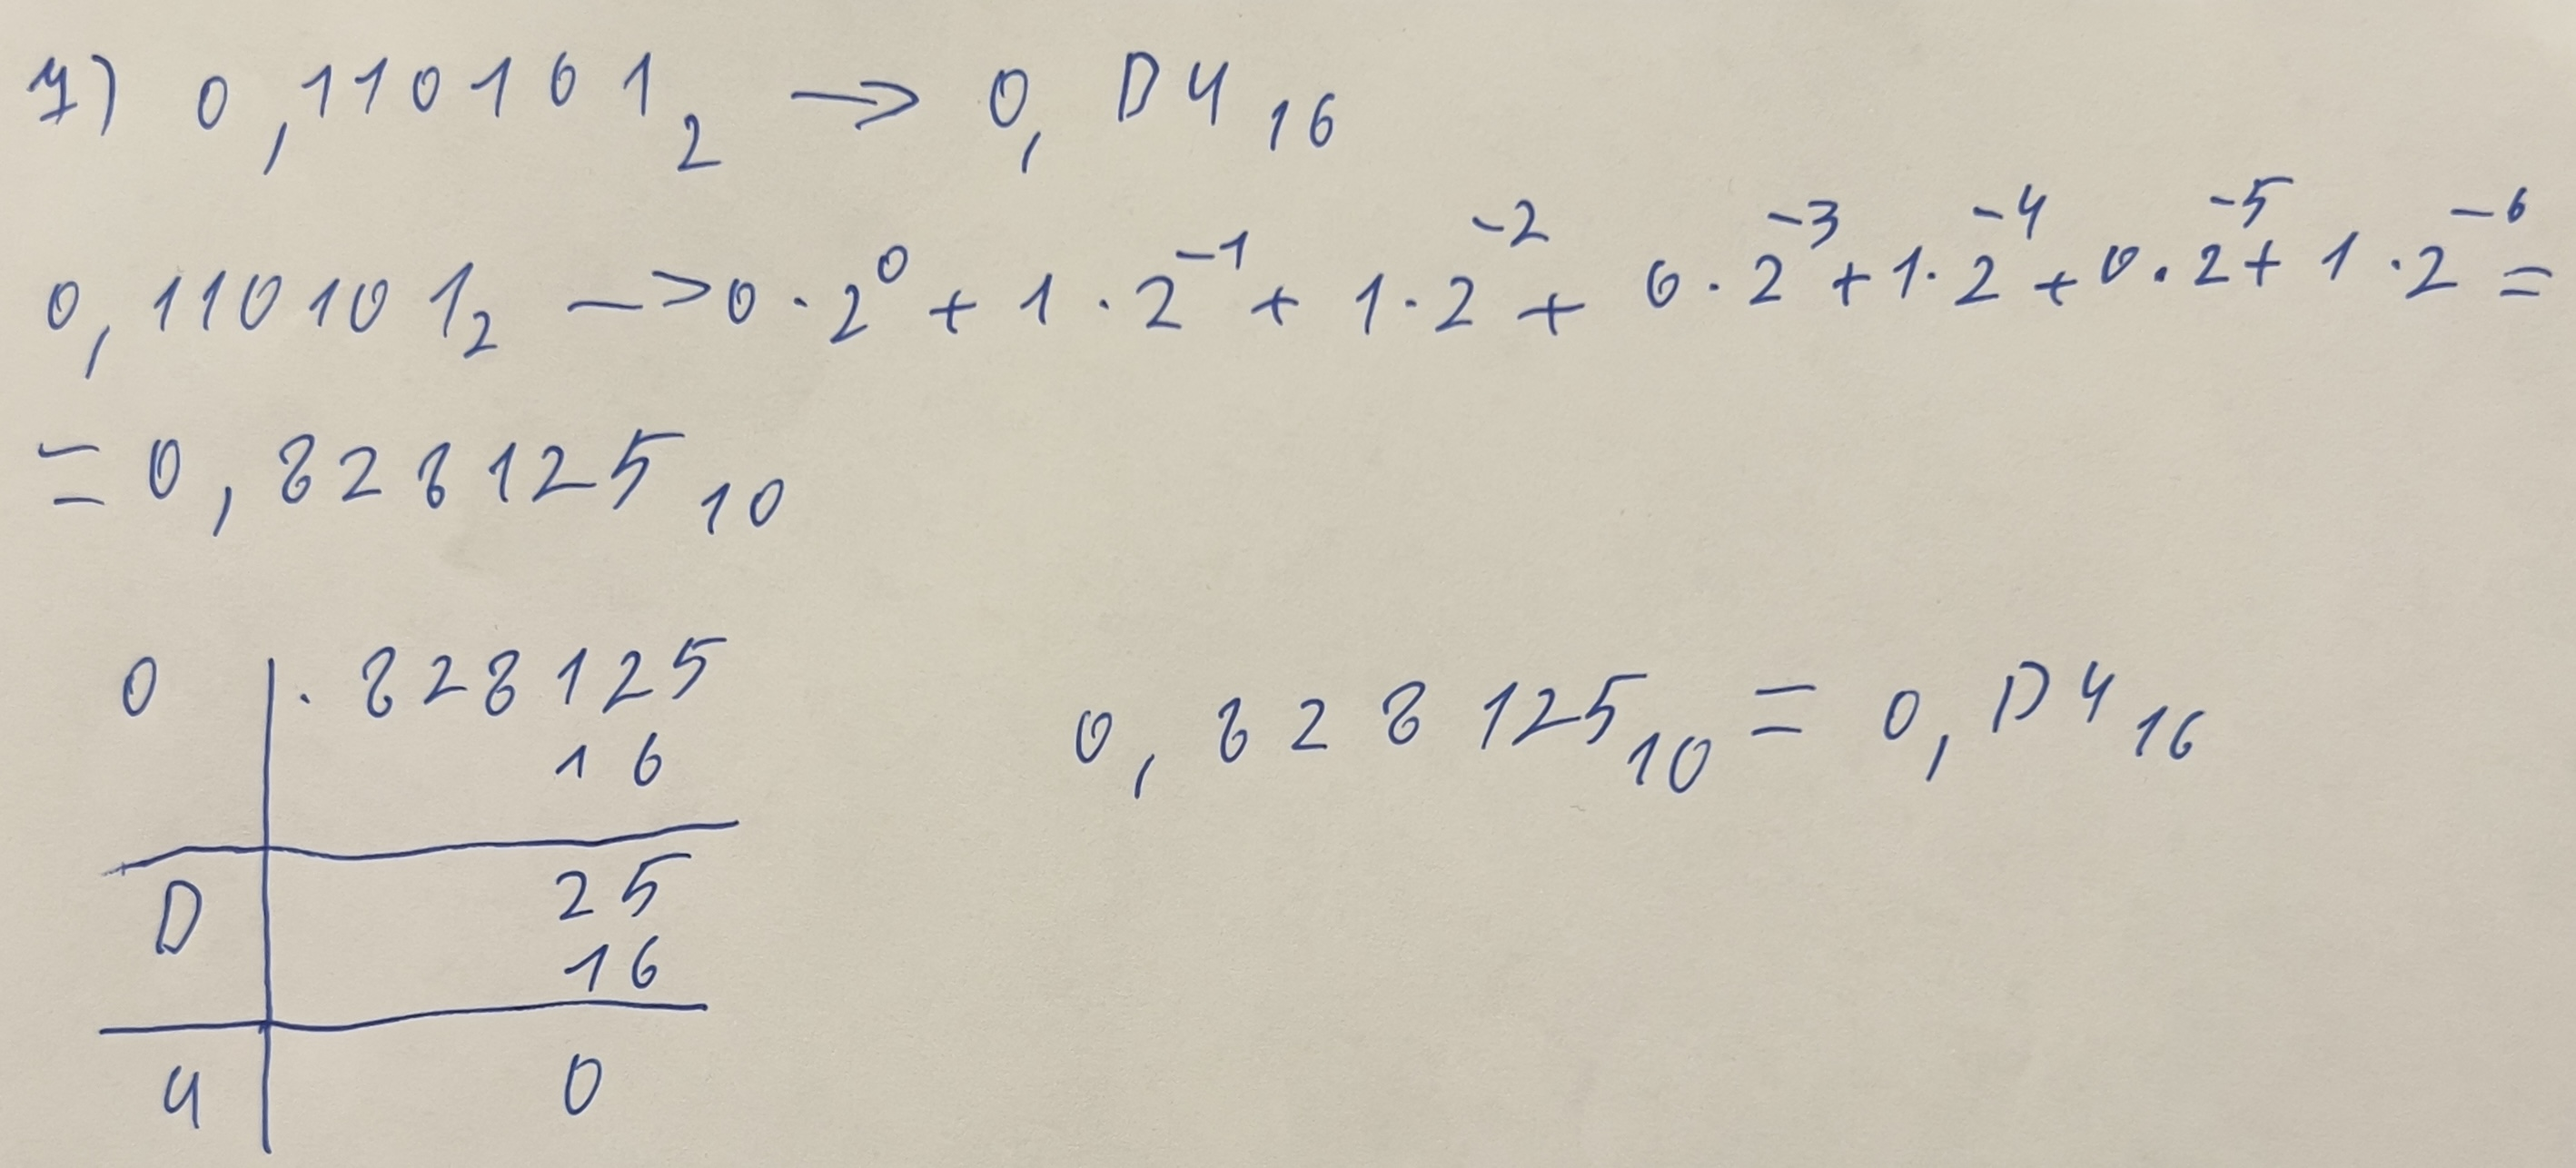 7) 0,110101₂ → 0,D4₁₆
0,110101₂ → 0·2⁰ + 1·2⁻¹ + 1·2⁻² + 0·2⁻³ + 1·2⁻⁴ + 0·2⁻⁵ + 1·2⁻⁶ =
= 0,828125₁₀
0 | .828125
16
D | 25
16
4 | 0
0,828125₁₀ = 0,D4₁₆